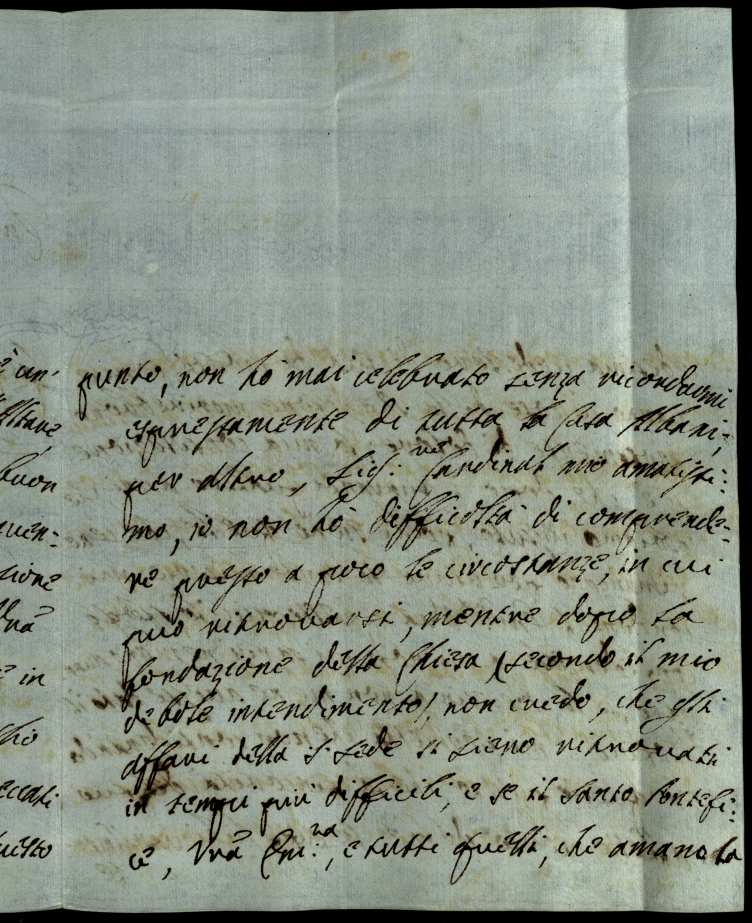 punto, non hò mai celebrato senza ricordarmi
espressamente di tutta la Casa Albani;
per altro, Sig:r Cardinal mio amatissi:
mo, io non hò difficoltà di comprende:
re presto a poco le circostanze, in cui
può ritrovarsi, mentre dopo la
fondazione della Chiesa (secondo il mio
debole intendimento), non credo, che gli
affari della S. Sede si sieno ritrovati
in tempi più difficili, e se il Santo Pontefi:
ce, Vrã Em:za, e tutti quelli, che amano la
Altare
buon
zione
Vrã
è in
eccati
questo